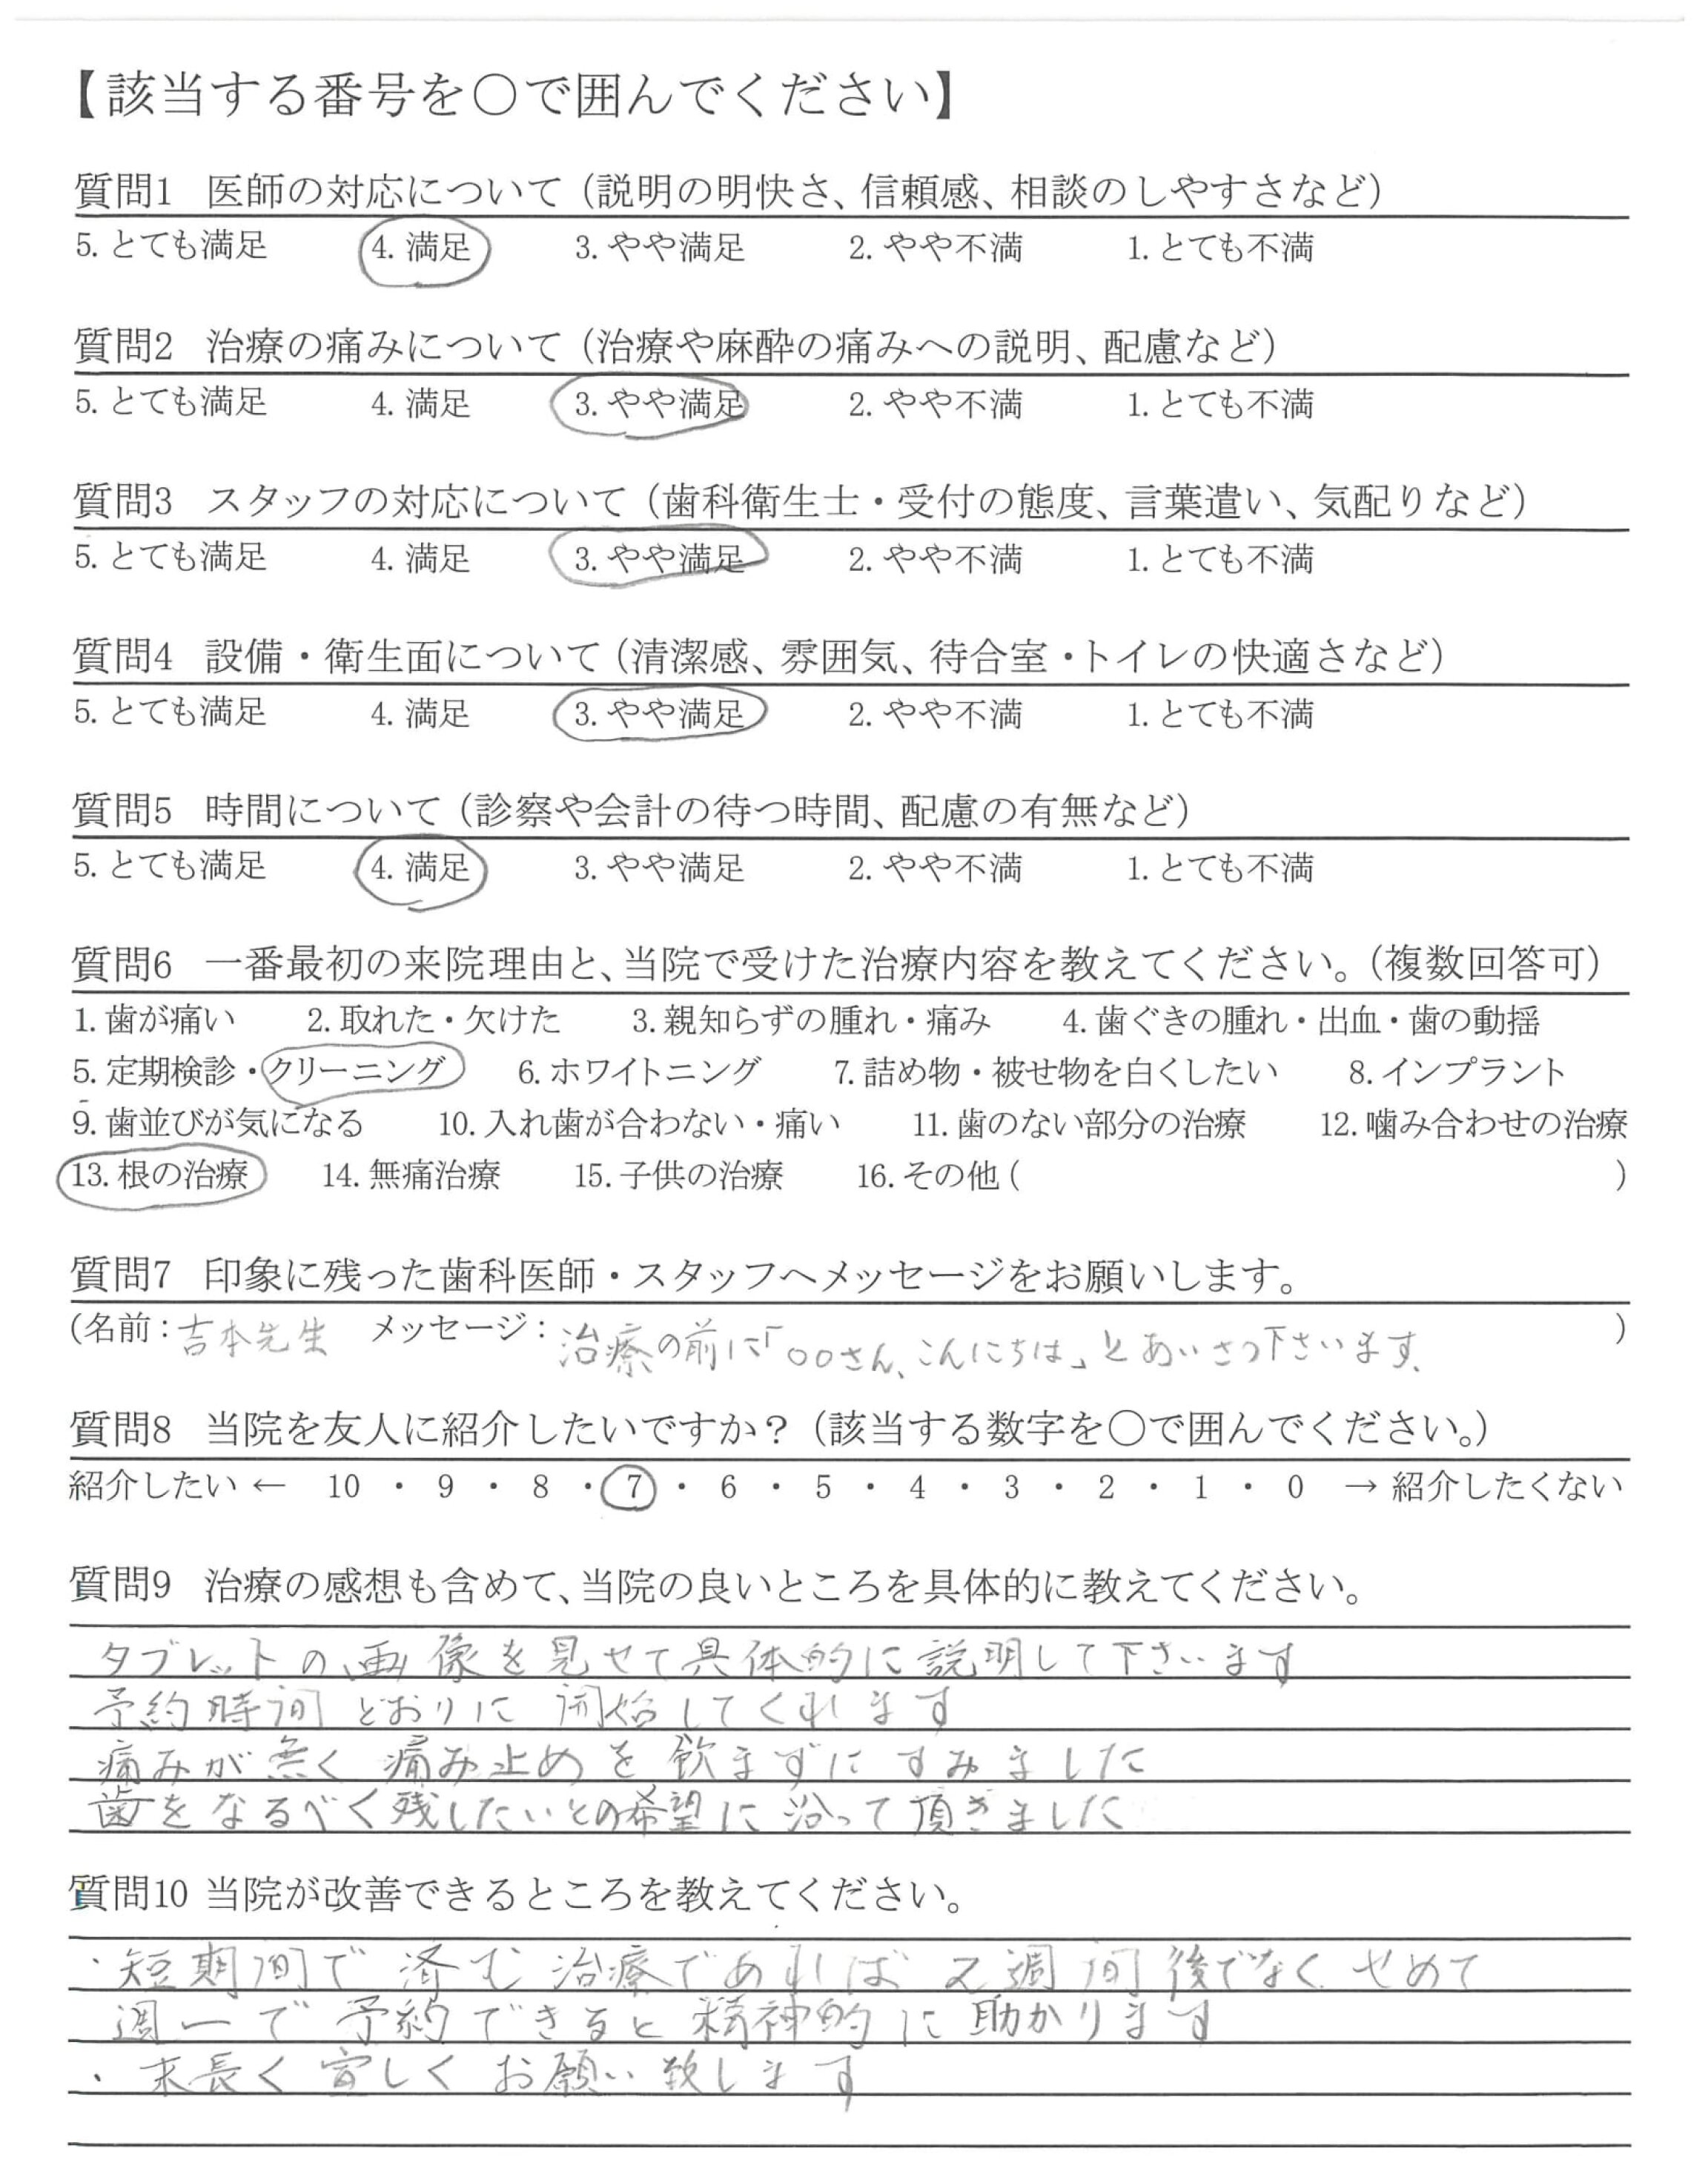 【該当する番号を〇で囲んでください】
質問1 医師の対応について（説明の明快さ、信頼感、相談のしやすさなど）
5. とても満足 4. 満足 3. やや満足 2. やや不満 1. とても不満
質問2 治療の痛みについて（治療や麻酔の痛みへの説明、配慮など）
5. とても満足 4. 満足 3. やや満足 2. やや不満 1. とても不満
質問3 スタッフの対応について（歯科衛生士・受付の態度、言葉遣い、気配りなど）
5. とても満足 4. 満足 3. やや満足 2. やや不満 1. とても不満
質問4 設備・衛生面について（清潔感、雰囲気、待合室・トイレの快適さなど）
5. とても満足 4. 満足 3. やや満足 2. やや不満 1. とても不満
質問5 時間について（診察や会計の待つ時間、配慮の有無など）
5. とても満足 4. 満足 3. やや満足 2. やや不満 1. とても不満
質問6 一番最初の来院理由と、当院で受けた治療内容を教えてください。（複数回答可）
1. 歯が痛い 2. 取れた・欠けた 3. 親知らずの腫れ・痛み 4. 歯ぐきの腫れ・出血・歯の動揺
5. 定期検診・クリーニング 6. ホワイトニング 7. 詰め物・被せ物を白くしたい 8. インプラント
9. 歯並びが気になる 10. 入れ歯が合わない・痛い 11. 歯のない部分の治療 12. 噛み合わせの治療
13. 根の治療 14. 無痛治療 15. 子供の治療 16. その他（ ）
質問7 印象に残った歯科医師・スタッフへメッセージをお願いします。
（名前：吉本先生 メッセージ：治療の前に「○○さん、こんにちは」とあいさつ下さいます。）
質問8 当院を友人に紹介したいですか？（該当する数字を〇で囲んでください。）
紹介したい ← 10 ・ 9 ・ 8 ・ 7 ・ 6 ・ 5 ・ 4 ・ 3 ・ 2 ・ 1 ・ 0 → 紹介したくない
質問9 治療の感想も含めて、当院の良いところを具体的に教えてください。
タブレットの画像を見せて具体的に説明して下さいます
予約時間どおりに開始してくれます
痛みが無く痛み止めを飲まずにすみました
歯をなるべく残したいとの希望に沿って頂きました
質問10 当院が改善できるところを教えてください。
・短期間で済む治療であれば2週間後でなくせめて
週一で予約できると精神的に助かります
・末長く宜しくお願い致します